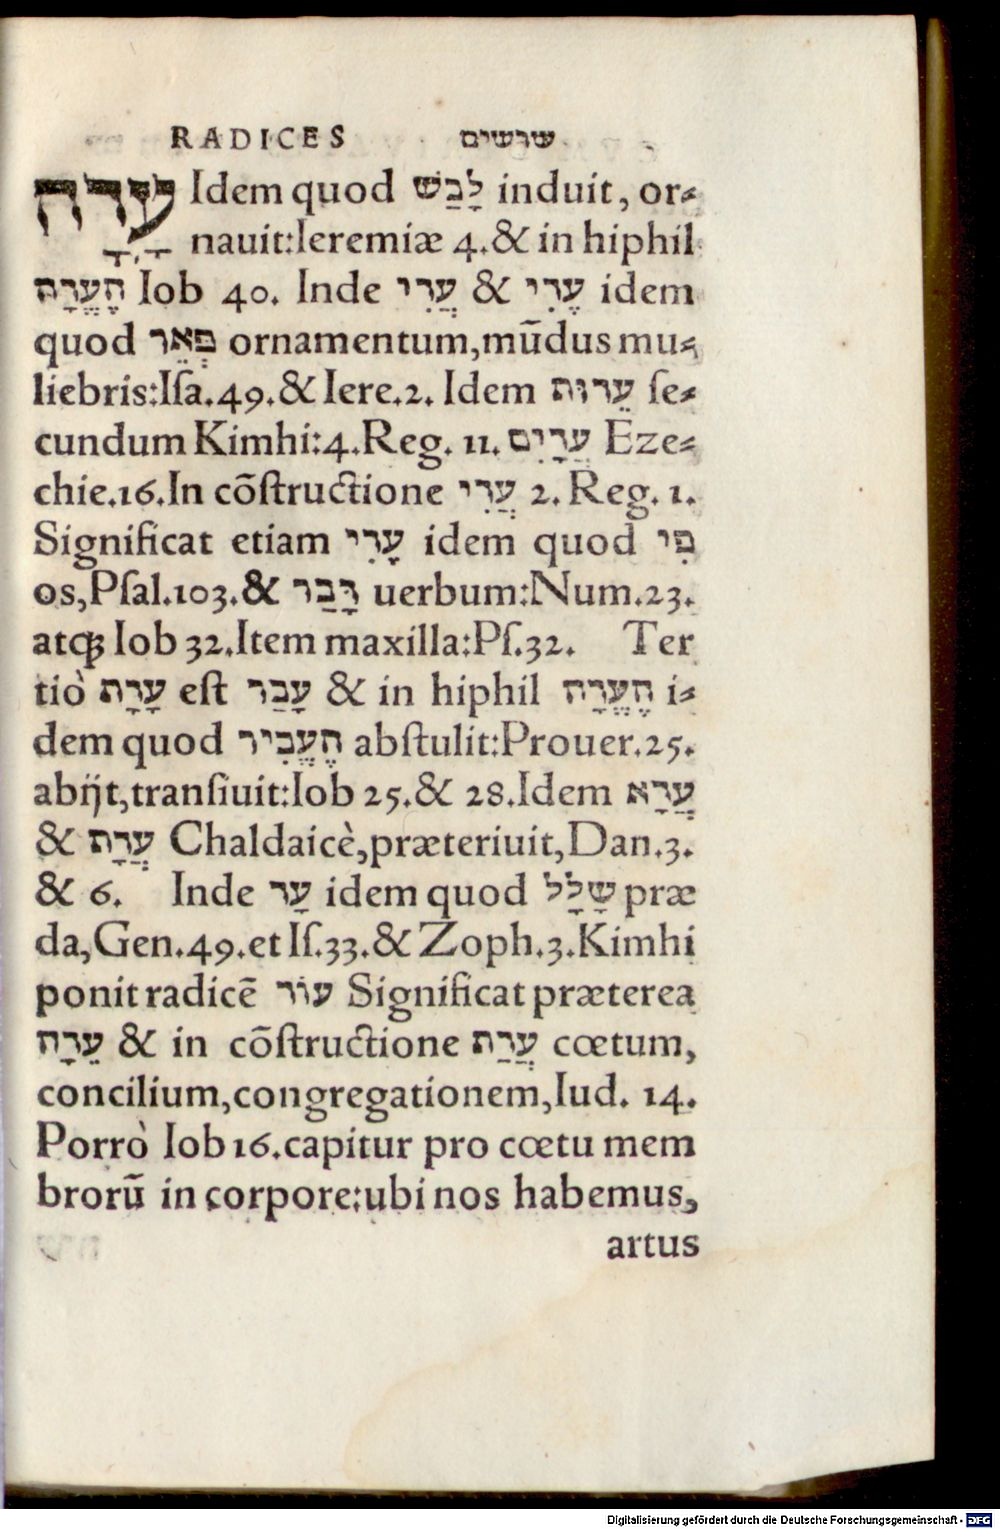 RADICES שרשים
עָדָה Idem quod לָבַשׁ induit, or⸗
nauit:Ieremiæ 4.& in hiphil
הֶעֱדָה Iob 40. Inde עֶדִי & עֲדִי idem
quod פְּאֵר ornamentum,mūdus mu⸗
liebris:Iſa.49.& Iere.2. Idem עֵדוּת ſe⸗
cundum Kimhi:4.Reg. 11. עֲדָיִם Eze⸗
chie.16.In cōſtructione עֲדִי 2. Reg. 1.
Significat etiam עָדִי idem quod פִּי
os,Pſal.103.& דָּבַר uerbum:Num.23.
atqꝫ Iob 32.Item maxilla:Pſ.32. Ter
tiò עָדָה eſt עָבַר & in hiphil הֶעֱדָה i⸗
dem quod הֶעֱבִיר abſtulit:Prouer.25.
abijt,tranſiuit:Iob 25.& 28.Idem עֲדָא
& עֲדָת Chaldaicè,præteriuit,Dan.3.
& 6. Inde עָד idem quod שָׁלָל præ
da,Gen.49.et Iſ.33.& Zoph.3.Kimhi
ponit radicē עוֹד Significat præterea
עֵדָה & in cōſtructione עֲדַת cœtum,
concilium,congregationem,Iud. 14.
Porrò Iob 16.capitur pro cœtu mem
brorū in corpore:ubi nos habemus,
artus
Digitalisierung gefördert durch die Deutsche Forschungsgemeinschaft - DFG